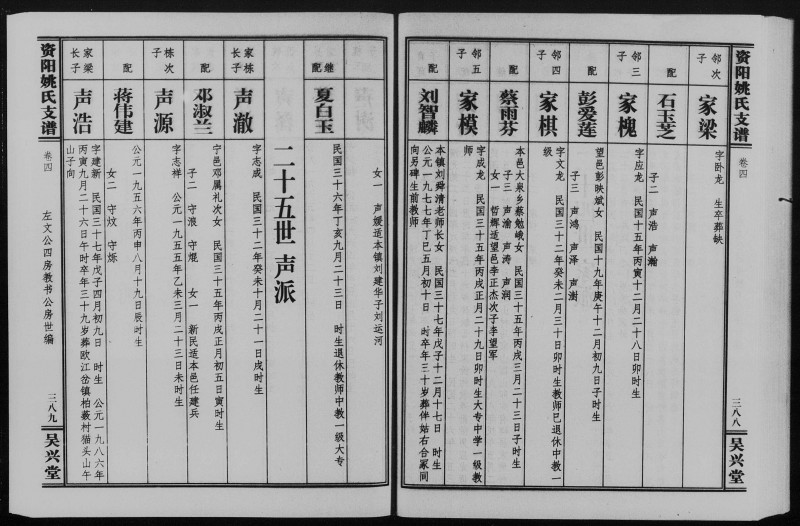 资阳姚氏支谱
卷四
三八八
吴兴堂
邻次子
家梁
字卧龙 生卒葬缺
配
石玉芝
子二 声浩 声瀚
邻三子
家槐
字应龙 民国十五年丙寅十二月二十八日卯时生
配
彭爱莲
望邑彭映斌女 民国十九年庚午十二月初九日子时生
子三 声鸿 声泽 声澍
邻四子
家棋
字文龙 民国三十二年癸未二月三十日卯时生教师已退休中教一
级
配
蔡雨芬
本邑大泉乡蔡勉峨女 民国三十五年丙戌三月二十三日子时生
子三 声渝 声涛 声润
女一 哲辉适望邑李正杰次子李望军
邻五子
家模
字成龙 民国三十五年丙戌正月二十九日卯时生大专中学一级教
师
配
刘智麟
本镇刘舜清老师长女 民国三十七年戊子十二月十七日 时生
公元一九七七年丁巳五月初十日 时卒年三十岁葬伴姑右合冢同
向另碑生前教师
女一 声嫒适本镇刘建华子刘运河
继配
夏白玉
民国三十六年丁亥九月二十三日 时生退休教师中教一级大专
二十五世 声派
家栋长子
声澈
字志成 民国三十二年癸未十月二十一日戌时生
配
邓淑兰
宁邑邓属礼次女 民国三十五年丙戌正月初五日寅时生
子二 守浪 守焜 女一 新民适本邑任建兵
栋次子
声源
字志祥 公元一九五五年乙未三月二十三日未时生
配
蒋伟建
公元一九五六年丙申八月十九日辰时生
女二 守炆 守烁
家梁长子
声浩
字建新 民国三十七年戊子四月初九日 时生 公元一九八六年
丙寅九月二十六日午时卒年三十九岁葬欧江岔镇柏薮村猫头山午
山子向
资阳姚氏支谱
卷四
左文公四房教书公房世编
三八九
吴兴堂